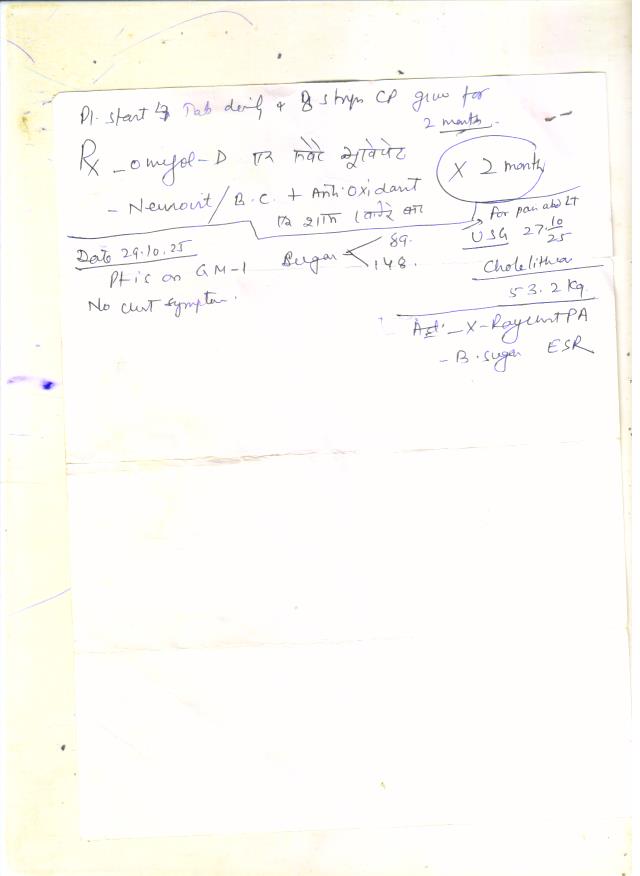 Pl. start Tab & 8 strips CP give for
2 month.
Rx - omezol-D एक सवेरे भूखे पेट
x 2 month
- Neurovit / B.C. + Anti Oxidant
एक शाम
Date 29.10.25
Pt is on GM-1
No chest symptom.
Sugar < 89.
148.
For pain abd Lt
USG 27.10/25
Cholelithia
53.2 kg.
Ad:- X-Ray chest PA
- B. sugar ESR